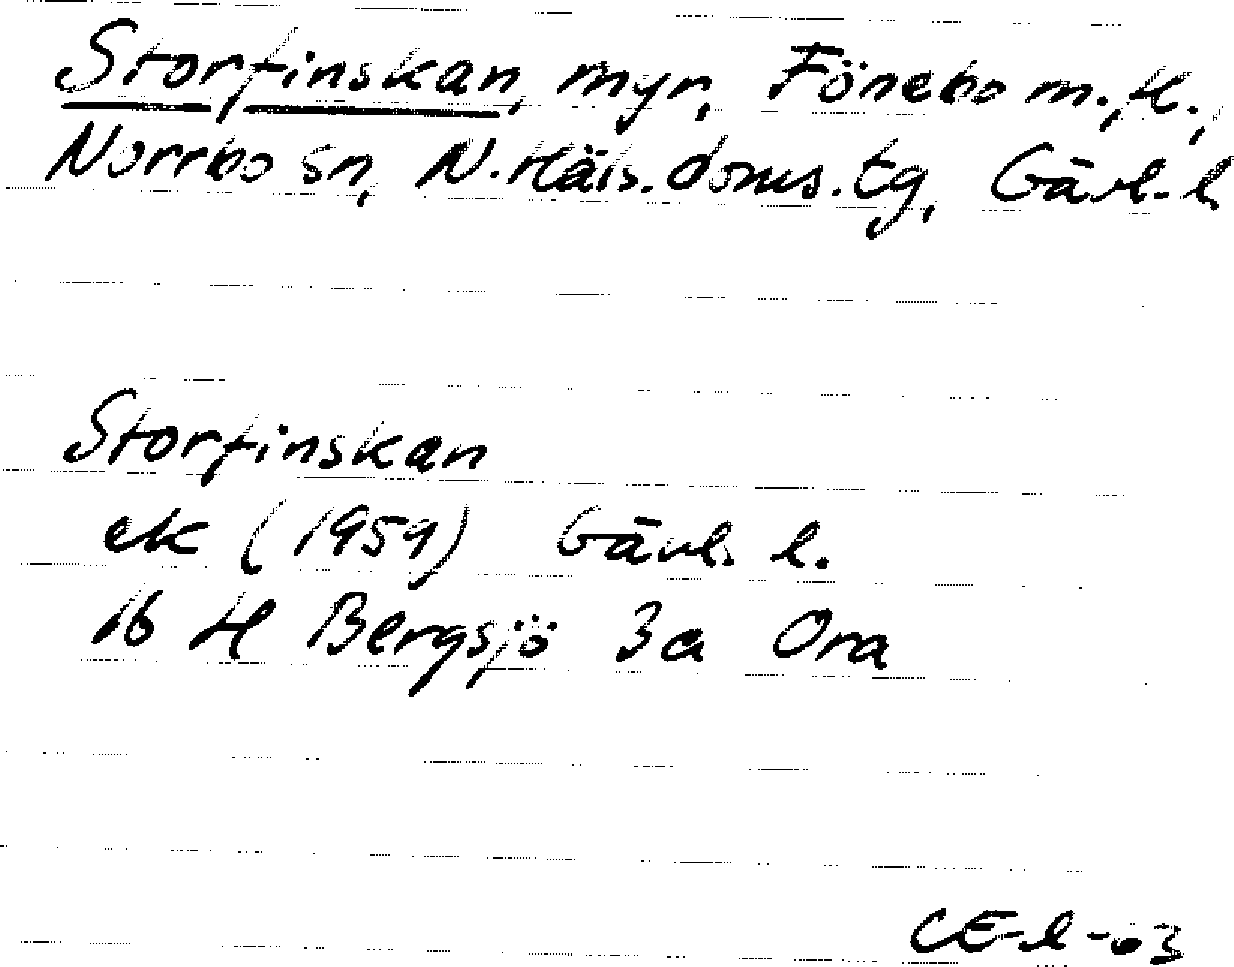 Storfinskan, myr, Fönebo m.fl.,
Norrbo sn, N.Häls.doms.tg, Gävl.l.
Storfinskan
ek (1959) Gävl. l.
16 H Bergsjö 3a Ora
CE-l-63